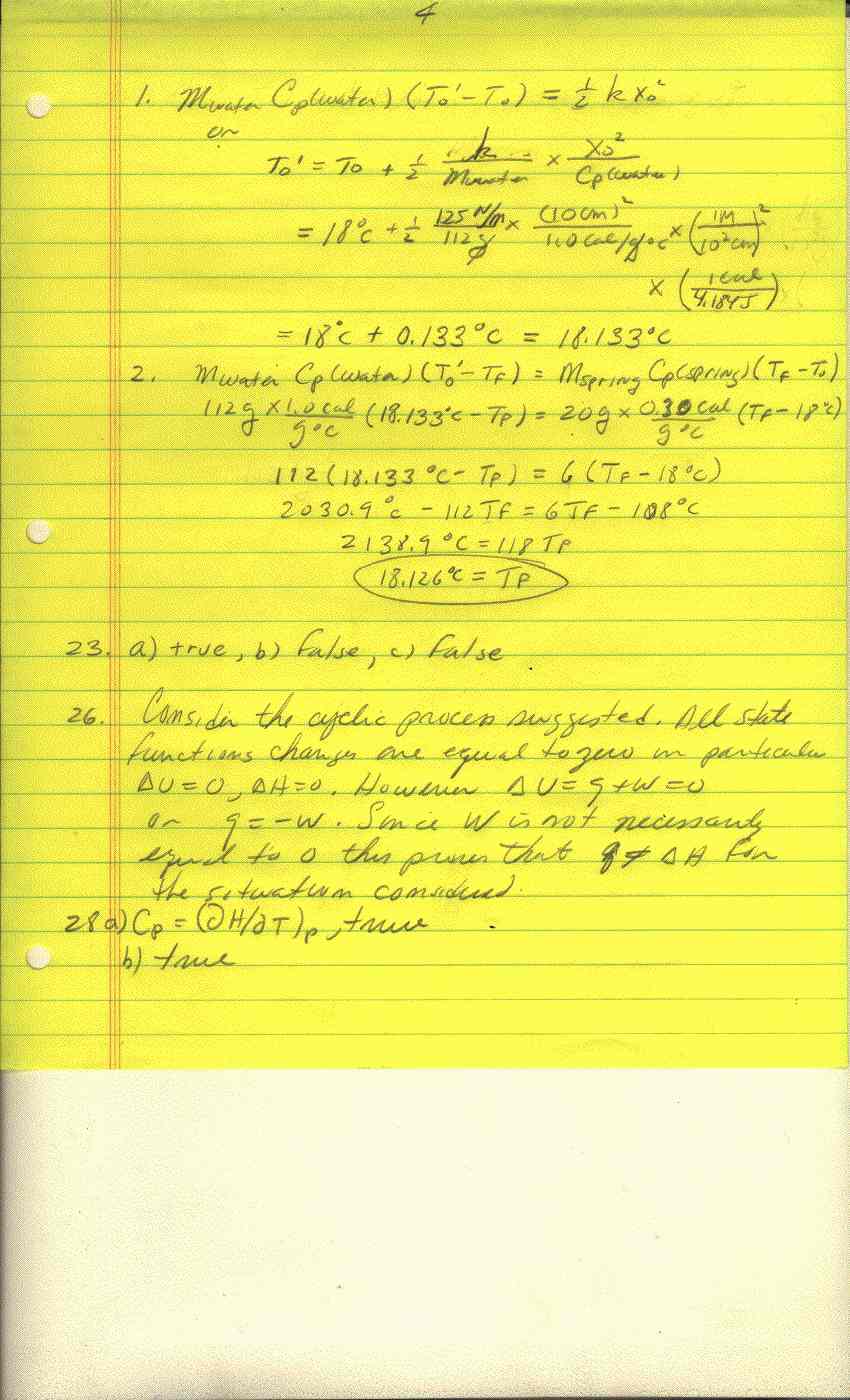 4
1. Mwater Cp(water) (To' - To) = ½ k Xo²
or
To' = To + ½ k/Mwater × Xo²/Cp(water)
= 18°C + ½ 125 N/m/112 g × (10 cm)²/1.0 cal/g°C × (1M/10²cm)²
× (1 cal/4.184J)
= 18°C + 0.133°C = 18.133°C
2. Mwater Cp(water) (To' - TF) = Mspring Cp(spring) (TF - To)
112 g × 1.0 cal/g°C (18.133°C - TF) = 20g × 0.30 cal/g°C (TF - 18°C)
112 (18.133°C - TF) = 6 (TF - 18°C)
2030.9°C - 112 TF = 6 TF - 108°C
2138.9°C = 118 TF
18.126°C = TF
23. a) true, b) false, c) false
26. Consider the cyclic process suggested. All state
functions changes are equal to zero in particular
ΔU = 0, ΔH = 0. However ΔU = q + W = 0
or q = -W. Since W is not necessarily
equal to 0 this proves that q ≠ ΔH for
the situation considered.
28 a) Cp = (∂H/∂T)p, true
b) true